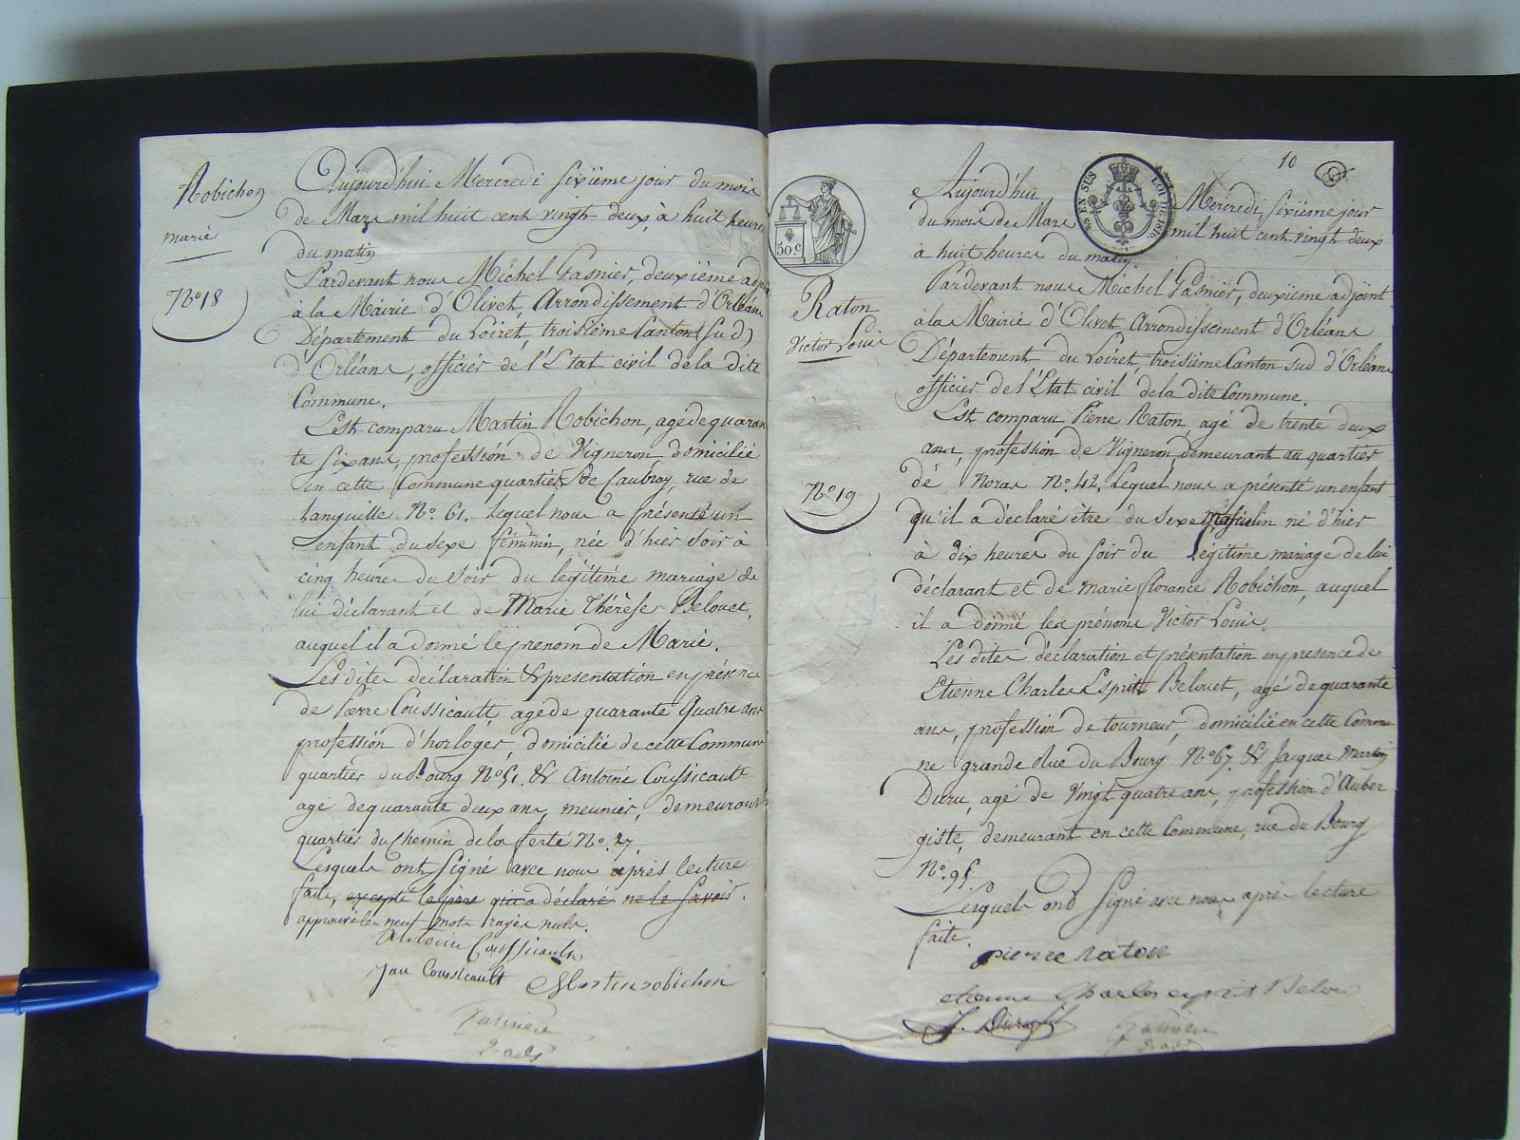 Robichon
marie
N°18
Aujourd'hui Mercredi sixième jour du mois
de Mars mil huit cent vingt deux, à huit heures
du matin
Pardevant nous Michel Gasnier, deuxième adjoint
à la Mairie d'Olivet, Arrondissement d'Orléans
Département du Loiret, troisième Canton (Sud)
d'Orléans, officier de l'Etat civil de la dite
Commune.
Est comparu Martin Robichon, agé de quaran
te six ans, profession de Vigneron domicilié
en cette Commune quartier de Caubroy, rue de
Languette N° 61. lequel nous a présenté un
enfant du sexe féminin, née d'hier soir à
cinq heures du soir du légitime mariage de
lui déclarant et de Marie Thérèse Belouet,
auquel il a donné le prenom de Marie.
Les dites déclaration & presentation en présence
de Pierre Coussicault agé de quarante quatre ans
profession d'horloger, domicilié de cette Commune
quartier du Bourg N° 51. & Antoine Coussicault
agé de quarante deux ans, meunier, demeurant
quartier du Chemin de la ferté N° 27.
Lesquels ont signé avec nous après lecture
faite, excepté le père qui a déclaré ne le savoir.
approuvé les neuf mots rayés nuls.
antoine Coussicault
Coussicault Martin robichon
10
EN SUS
50 c
Raton
Victor Louis
N° 19
Aujourd'hui Mercredi sixième jour
du mois de Mars mil huit cent vingt deux
à huit heures du matin.
Pardevant nous Michel Gasnier, deuxième adjoint
à la Mairie d'Olivet Arrondissement d'Orléans
Département du Loiret, troisième Canton sud d'Orléans
officier de l'Etat civil de la dite Commune.
Est comparu Pierre Raton agé de trente deux
ans, profession de Vigneron demeurant au quartier
de Noras N° 42. Lequel nous a présenté un enfant
qu'il a déclaré être du sexe Masculin né d'hier
à dix heures du soir du Légitime mariage de lui
déclarant et de marie florance Robichon, auquel
il a donné les prénoms Victor Louis.
Les dites déclaration et présentation en presence de
Etienne Charles Esprit Belouet, agé de quarante
ans, profession de tourneur, domicilié en cette Commu
ne grande Rue du Bourg N° 67. & Jacques Martin
Duru, agé de Vingt quatre ans, profession d'Auber
giste, demeurant en cette Commune, rue du Bourg
N° 95.
Lesquels ont Signé avec nous après lecture
faite.
pierre raton
etienne Charles esprit Belou
J. Duru